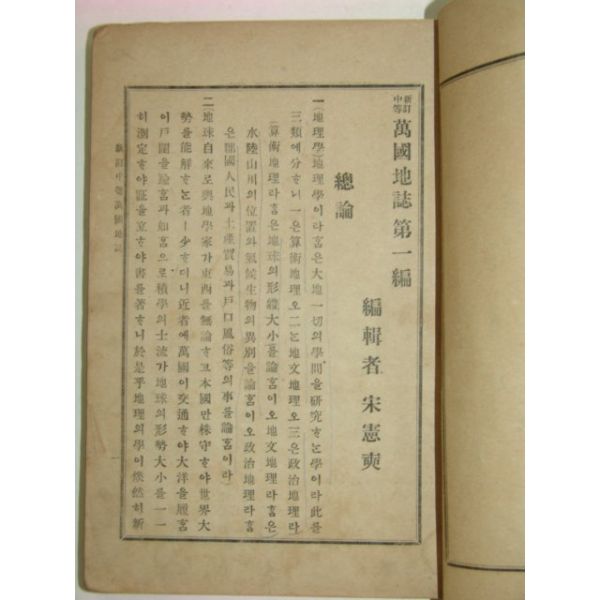 新訂中等 萬國地誌第一編
編輯者 宋憲奭
總論
一(地理學)地理學이라홈은大地一切의學問을硏究ᄒᆞᄂᆞᆫ學이라此를
三類에分ᄒᆞ니一은算術地理오二ᄂᆞᆫ地文地理오三은政治地理라
算術地理라홈은地球의形體大小를論홈이오地文地理라홈은
水陸山川의位置와氣候生物의異別을論홈이오政治地理라홈
은邦國人民과土產貿易과戶口風俗等의事를論홈이라
二(地球自來로輿地學家가東西를無論ᄒᆞ고本國만株守ᄒᆞ야世界大
勢를能解ᄒᆞᄂᆞᆫ者ㅣ少ᄒᆞ더니近者에萬國이交通ᄒᆞ야大洋을履홈
이戶閾을踰홈과如홈으로積學의士流가地球의形勢大小를一一
히測定ᄒᆞ야證을立ᄒᆞ야書를著ᄒᆞ니於是乎地理의學이煥然히新
新訂中等萬國地誌